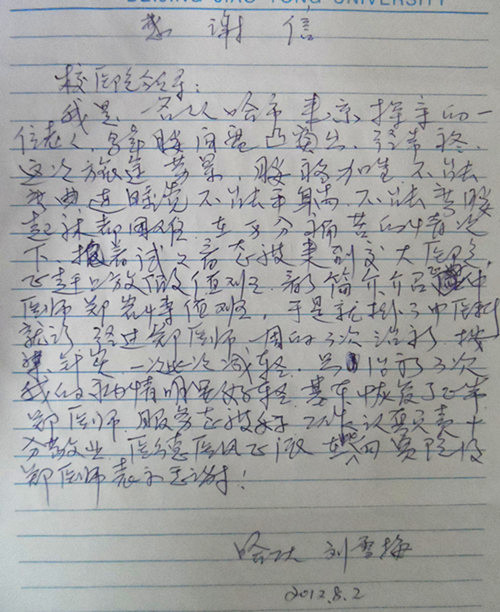 BEIJING JIAO TONG UNIVERSITY
感 谢 信
校医院领导:
我是一名从哈市来京探亲的一
位老人,多年腰间盘凸突出,经常疼.
这次旅途劳累,腰疼加重,不能
弯曲连睡觉不能平躺,不能
起床都困难,在万分痛苦的情况
下,抱着试试看态度来到交大医院,
医师郑岩,于是就挂了中医科
就诊,经过郑医师一周的3次治疗,
针灸一次比一次减轻,只治疗了3次
我的病情明显好转,基本恢复了正常
郑医师服务态度好,工作认真负责十
分敬业,医德医风正派
郑医师表示感谢!
哈市 刘雪梅
2012.8.2